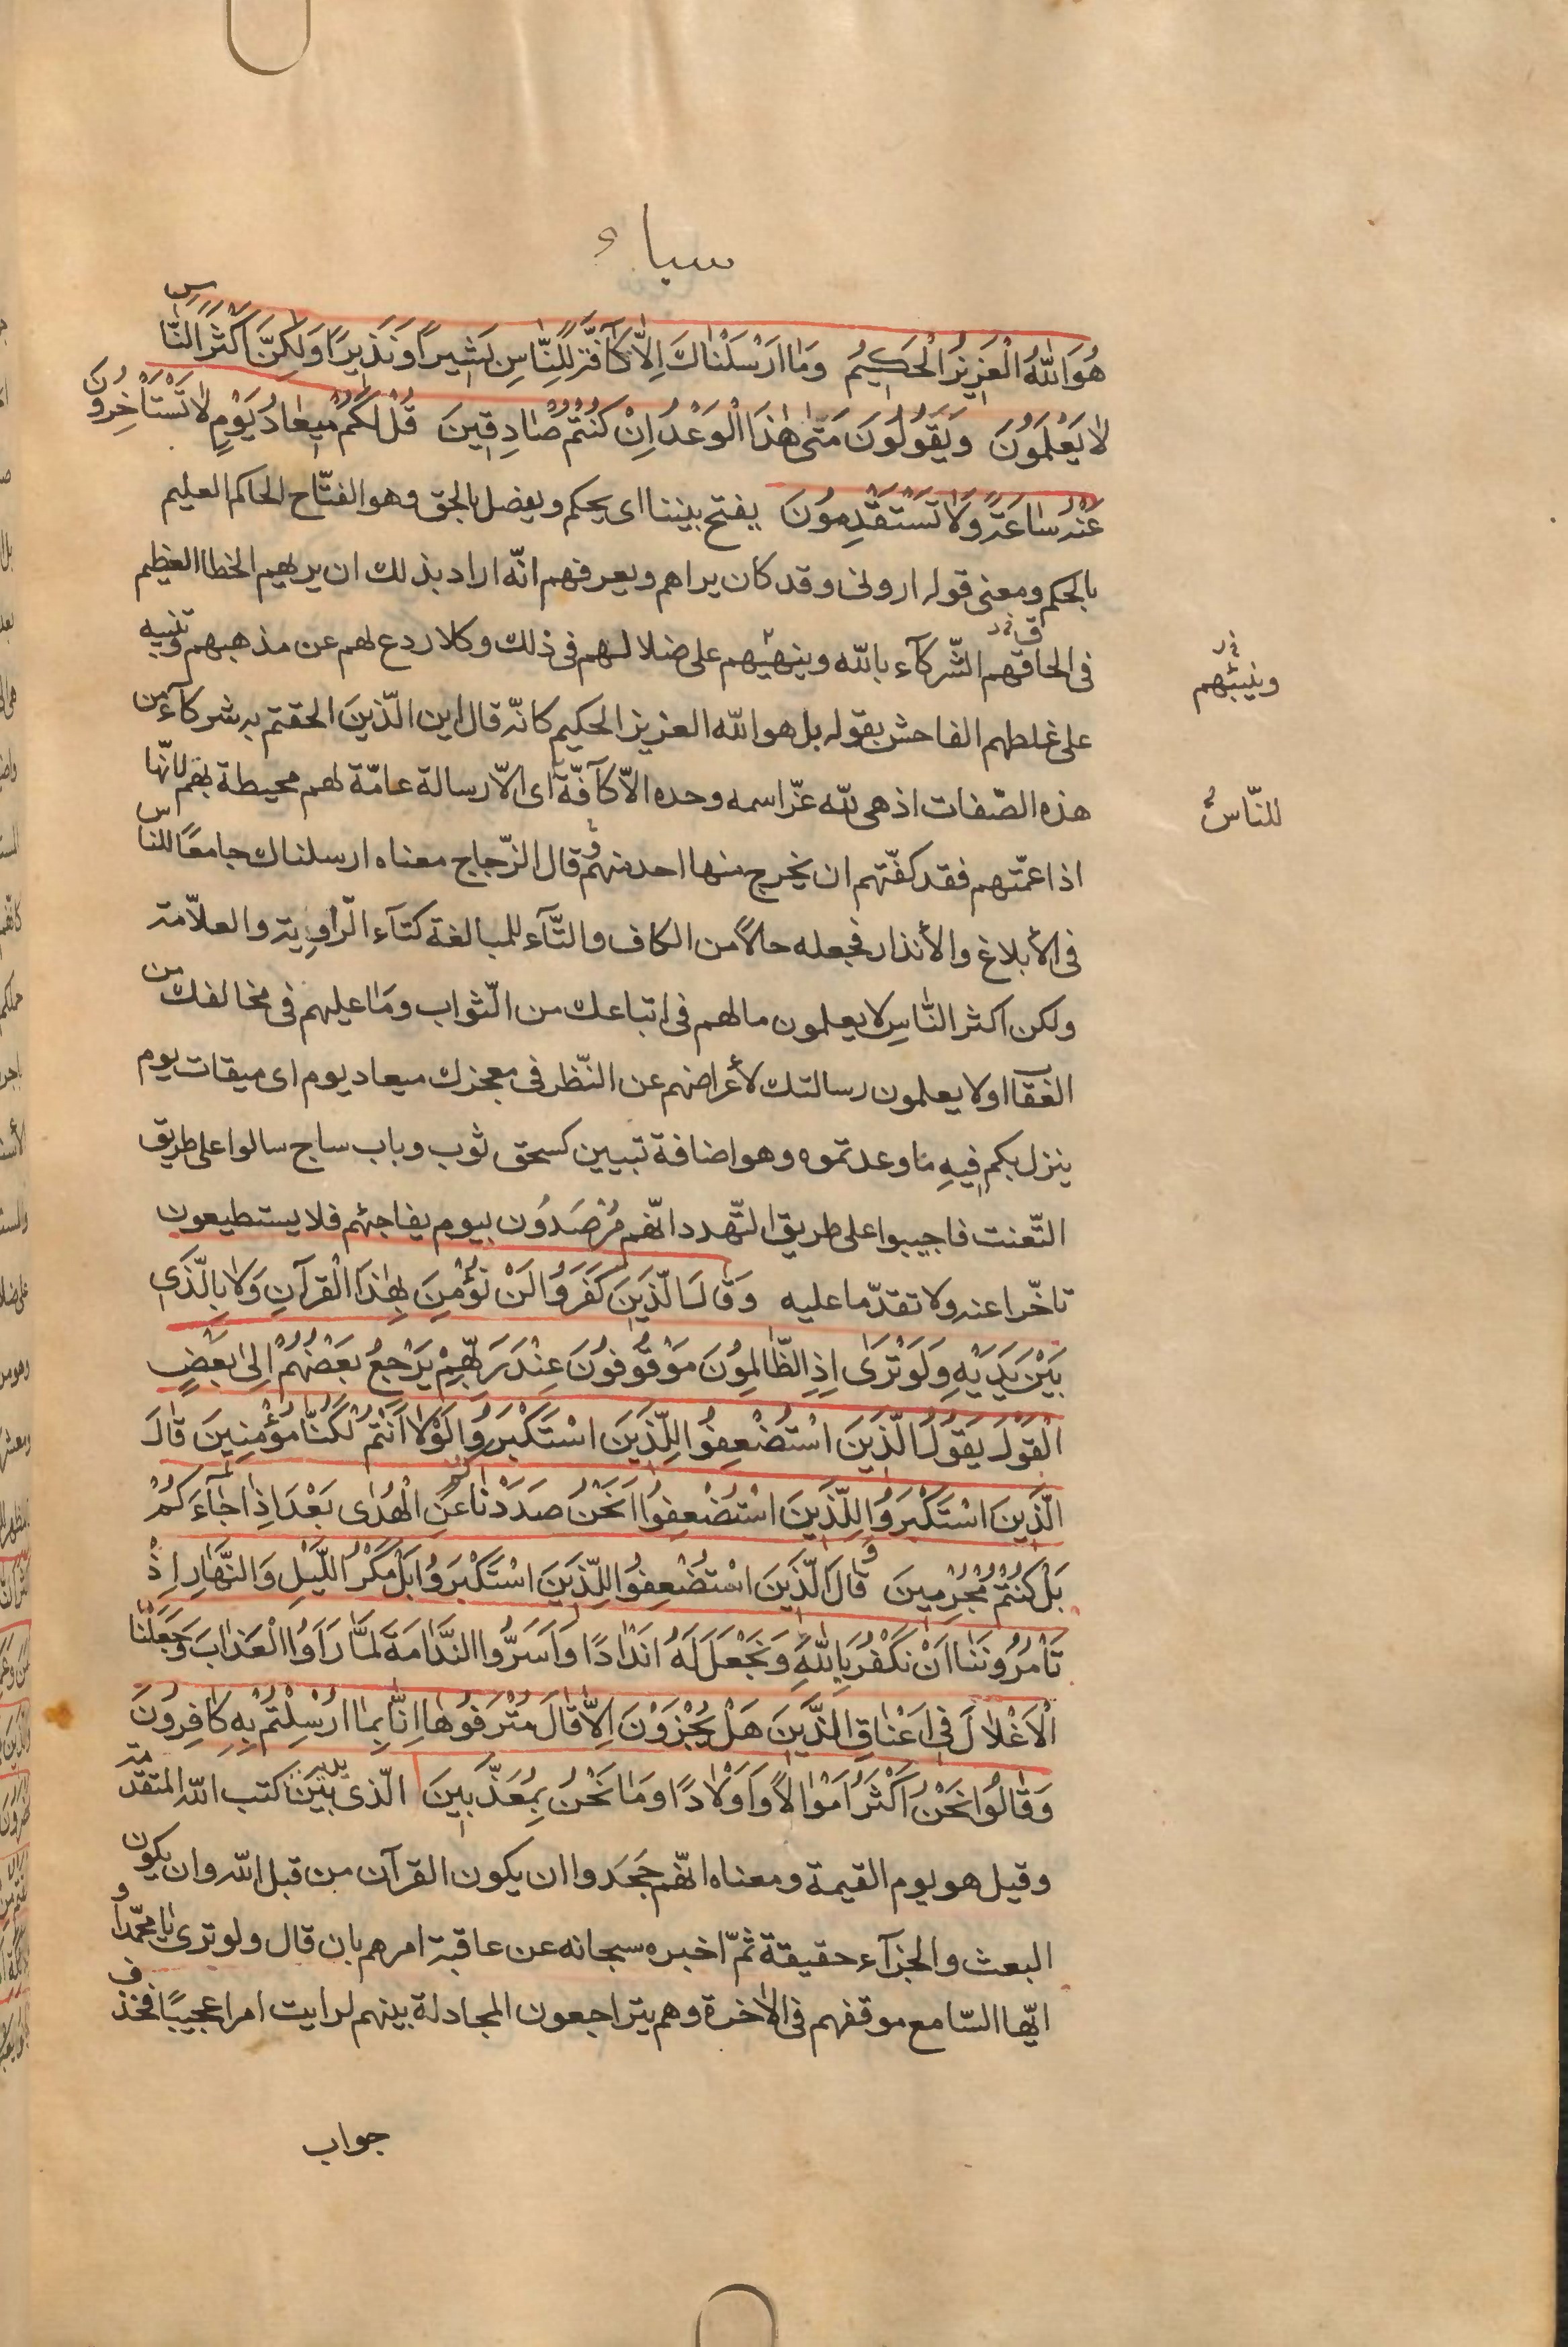 سباء
هُوَ اللّٰهُ الْعَزِيزُ الْحَكِيمُ وَمٰا اَرْسَلْنٰاكَ اِلّٰا كٰآفَّةً لِلنّٰاسِ بَشِيرًا وَنَذِيرًا وَلٰكِنَّ اَكْثَرَ النّٰاسِ
لٰا يَعْلَمُونَ وَيَقُولُونَ مَتٰى هٰذَا الْوَعْدُ اِنْ كُنْتُمْ صٰادِقِينَ قُلْ لَكُمْ مِيعٰادُ يَوْمٍ لٰا تَسْتَأْخِرُونَ
عَنْهُ سٰاعَةً وَلٰا تَسْتَقْدِمُونَ يفتح بيننا اى يحكم ويفصل بالحق وهو الفتّاح الحاكم العليم
بالحكم ومعنى قوله ارونى وقد كان يراهم ويعرفهم انّه اراد بذلك ان يريهم الخطا العظيم
فى الحاقهم الشّركآء بالله وينبّههم على ضلالهم فى ذلك وكلا ردع لهم عن مذهبهم وتنبيه
وينبّئهم
على غلطهم الفاحش بقوله بل هو الله العزيز الحكيم كانّه قال اين الّذينَ الحقتم به شركآء من
هذه الصّفات اذ هى لله عزّ اسمه وحده الاّ كآفّةً اى الاّ رسالة عامّة لهم محيطة بهم لانّها
للنّاس
اذا عمّتهم فقد كفّتهم ان يخرج منها احد منهم وقال الزّجاج معناه ارسلناك جامعًا للناس
فى الأبلاغ والأنذار فجعله حالاً من الكاف والتّآء للمبالغة كتآء الرّاوية والعلاّمة
ولكن اكثر النّاسِ لا يعلمون مالهم فى اتباعك من الثّواب ومٰا عليهم فى مخالفتك من
العقاب اولا يعلمون رسالتك لأعراضهم عن النّظر فى معجزك ميعاد يوم اى ميقات يوم
ينزل بكم فيهِ مٰا وعدتموه وهو اضافة تبيين كسحق ثوب وباب ساج سالوا على طريق
التّعنت فاجيبوا على طريق التّهدد انّهم مُرْصَدُون بيوم يفاجئهم فلا يستطيعون
تاخّرا عنه ولا تقدّما عليه وَقالَ الَّذِينَ كَفَرُوا لَنْ نُؤْمِنَ بِهٰذَا الْقُرآنِ وَلٰا بِالَّذى
بَيْنَ يَدَيْهِ وَلَوْ تَرىٰ اِذِ الظّٰالِمُونَ مَوْقُوفُونَ عِنْدَ رَبِّهِمْ يَرْجِعُ بَعْضُهُمْ اِلىٰ بَعْضٍ
الْقَوْلَ يَقُولُ الَّذِينَ اسْتُضْعِفُوا لِلَّذِينَ اسْتَكْبَرُوا لَوْلٰا اَنْتُمْ لَكُنّٰا مُؤْمِنِينَ قٰالَ
الَّذِينَ اسْتَكْبَرُوا لِلَّذِينَ اسْتُضْعِفُوا اَنَحْنُ صَدَدْنٰاكُمْ عَنِ الْهُدٰى بَعْدَ اِذْ جٰآءَكُمْ
بَلْ كُنْتُمْ مُجْرِمِينَ وَقالَ الَّذِينَ اسْتُضْعِفُوا لِلَّذِينَ اسْتَكْبَرُوا بَلْ مَكْرُ اللَّيْلِ وَالنَّهٰارِ اِذْ
تَأْمُرُونَنٰا اَنْ نَكْفُرَ بِاللّٰهِ وَنَجْعَلَ لَهُ اَنْدٰادًا وَاَسَرُّوا النَّدٰامَةَ لَمّٰا رَاَوُا الْعَذٰابَ وَجَعَلْنَا
الْاَغْلٰالَ فِى اَعْنٰاقِ الَّذِينَ هَلْ يُجْزَوْنَ اِلّٰا قٰالَ مُتْرَفُوهٰا اِنّٰا بِمٰا اُرْسِلْتُمْ بِهِ كٰافِرُونَ
وَقٰالُوا نَحْنُ اَكْثَرُ اَمْوٰالًا وَاَوْلٰادًا وَمٰا نَحْنُ بِمُعَذَّبِينَ الّذى بَيْنَ يديه كتب الله المتقدمة
وقيل هو يوم القيمة ومعناه انّهم جَحَدوا ان يكون القرآن من قبل الله وان يكون
البعث والجزآء حقيقة ثمّ اخبره سبحانه عن عاقبة امرهم بان قال ولو ترى يٰا محمّد او
ايّها السّامع موقفهم فى الاٰخرة وهم يتراجعون المجادلة بينهم لرايت امرا عجيبًا فحذف
جواب